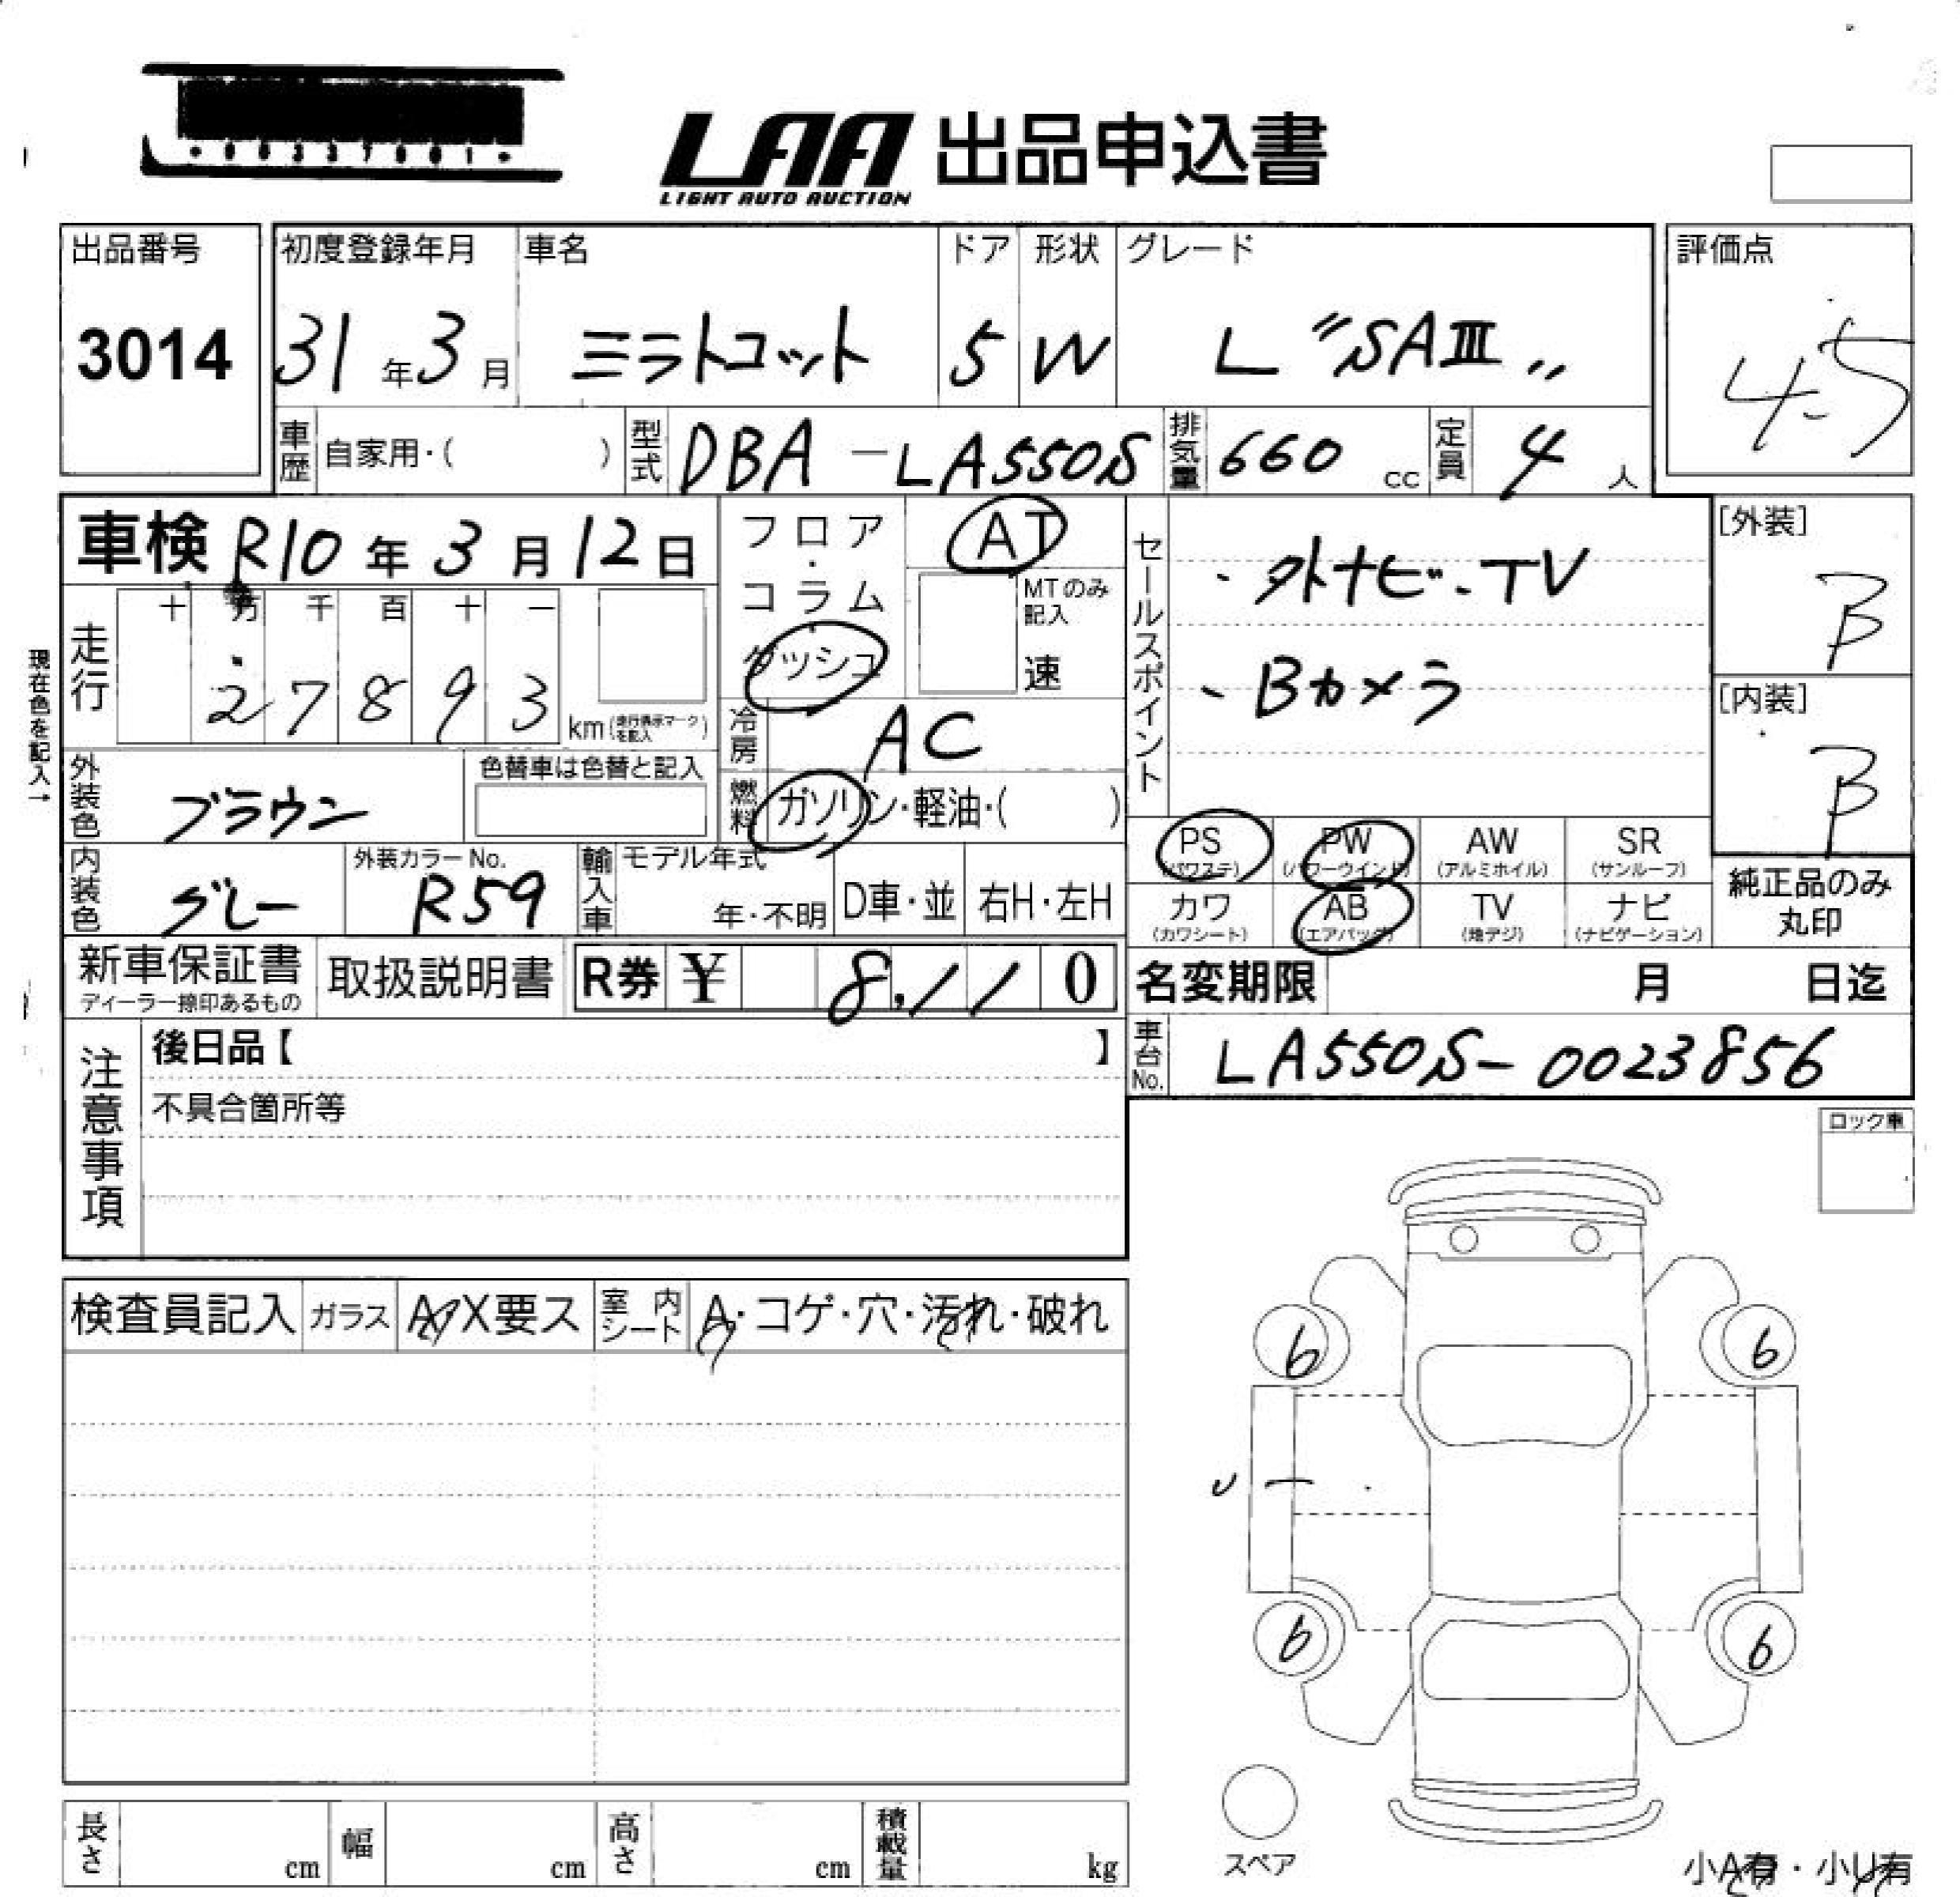 ・00337001・
LAA 出品申込書
LIGHT AUTO AUCTION
出品番号 初度登録年月 車名 ドア 形状 グレード 評価点
3014 31年3月 ミラトコット 5 W L "SAⅢ" 4.5
車歴 自家用・( ) 型式 DBA-LA550S 排気量 660 cc 定員 4人
車検 R10年3月12日
フロア・コラム・ダッシュ AT
MTのみ記入 速
セールスポイント
・外ナビ・TV
、Bカメラ
[外装] B
[内装] B
現在色を記入→
走行 十 万 千 百 十 一
27893 km(走行表示マークを記入)
冷房 AC
外装色 ブラウン 色替車は色替と記入
燃料 ガソリン・軽油・( )
PS (パワステ) PW (パワーウインド) AW (アルミホイル) SR (サンルーフ)
カワ (カワシート) AB (エアバッグ) TV (地デジ) ナビ (ナビゲーション)
純正品のみ丸印
内装色 グレー 外装カラーNo. R59 輸入車 モデル年式 年・不明 D車・並 右H・左H
新車保証書 ディーラー捺印あるもの 取扱説明書 R券 ¥ 8,110
名変期限 月 日迄
車台No. LA550S-0023856
注意事項
後日品【 】
不具合箇所等
ロック車
検査員記入 ガラス A・X要ス 室内シート A・コゲ・穴・汚れ・破れ
6 6
6 6
スペア
小A有・小U有
長さ cm 幅 cm 高さ cm 積載量 kg